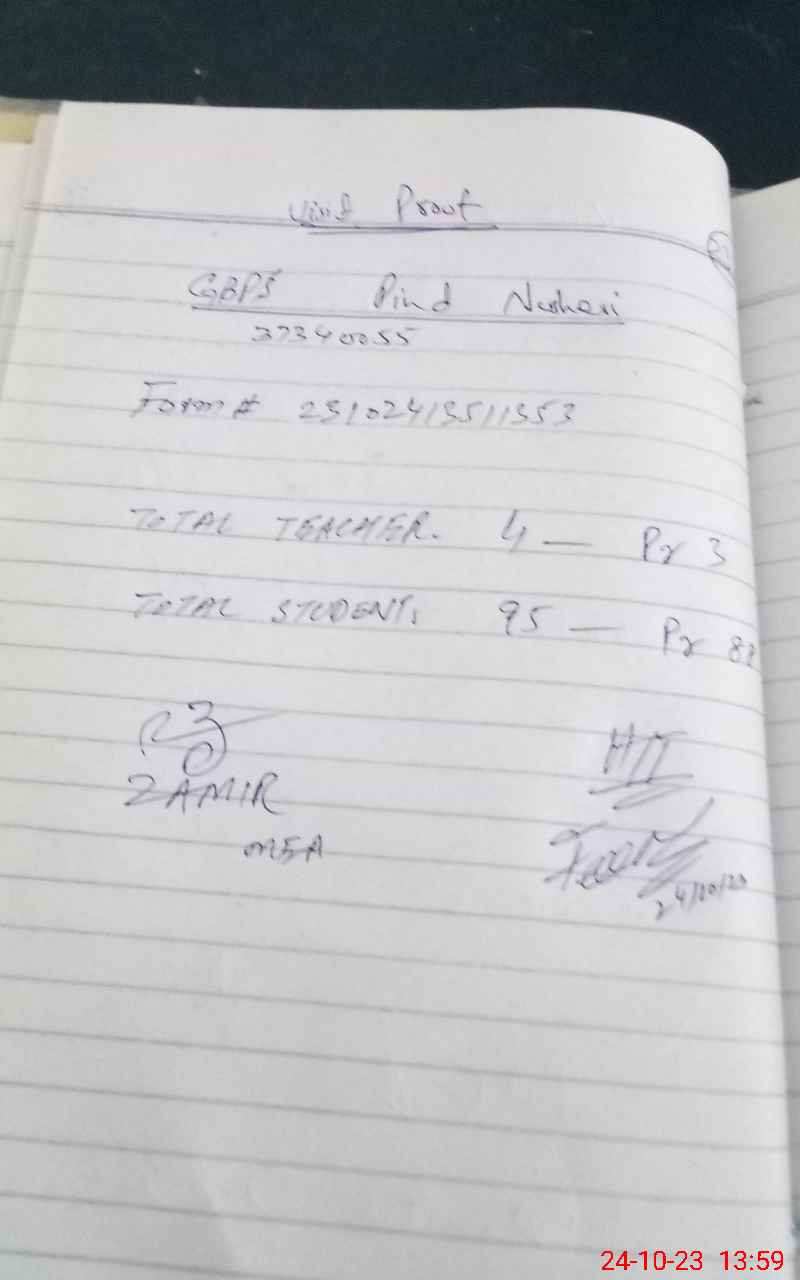 Visit Proof
GBPS Pind Nusheri
37340055
Form # 23102413511353
TOTAL TEACHER. 4 — Pr 3
TOTAL STUDENTS 95 — Pr
ZAMIR
MEA
HT
24-10-23 13:59